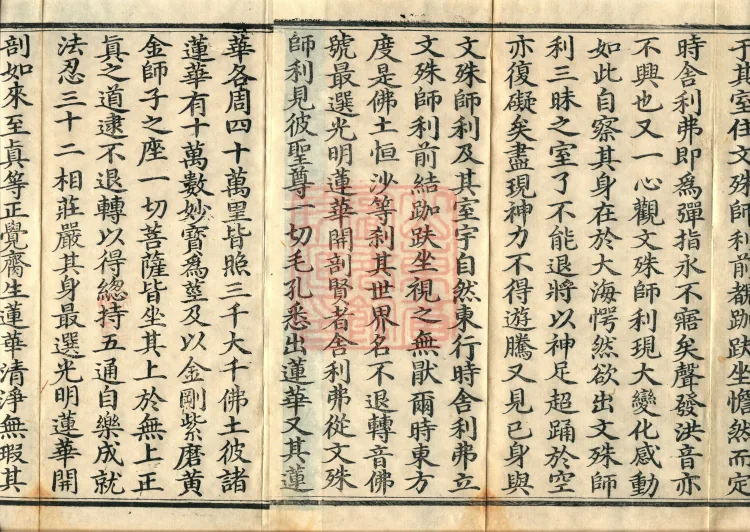 于其室住文殊師利前都跏趺坐憺然而定
時舍利弗即爲彈指永不寤矣聲發洪音亦
不興也又一心觀文殊師利現大變化感動
如此自察其身在於大海愕然欲出文殊師
利三昧之室了不能退將以神足超踊於空
亦復礙矣盡現神力不得遊騰又見己身與
文殊師利及其室宇自然東行時舍利弗立
文殊師利前結跏趺坐視之無猒爾時東方
度是佛土恒沙等刹其世界名不退轉音佛
號最選光明蓮華開剖賢者舍利弗從文殊
師利見彼聖尊一切毛孔悉出蓮華又其蓮
華各周四十萬里皆照三千大千佛土彼諸
蓮華有十萬數妙寶爲莖及以金剛紫磨黃
金師子之座一切菩薩皆坐其上於無上正
眞之道逮不退轉以得總持五通自樂成就
法忍三十二相莊嚴其身最選光明蓮華開
剖如來至眞等正覺齎生蓮華清淨無瑕其